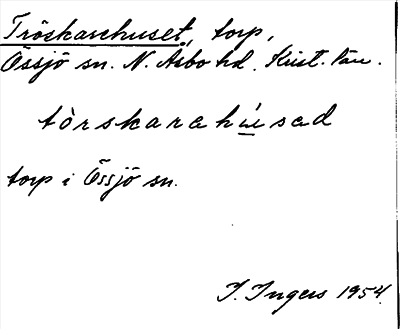 Tröskarehuset, torp,
Össjö sn. N. Åsbo hd. Krist. län.
tòrskarahúsad
torp i Össjö sn.
I. Ingers 1954.